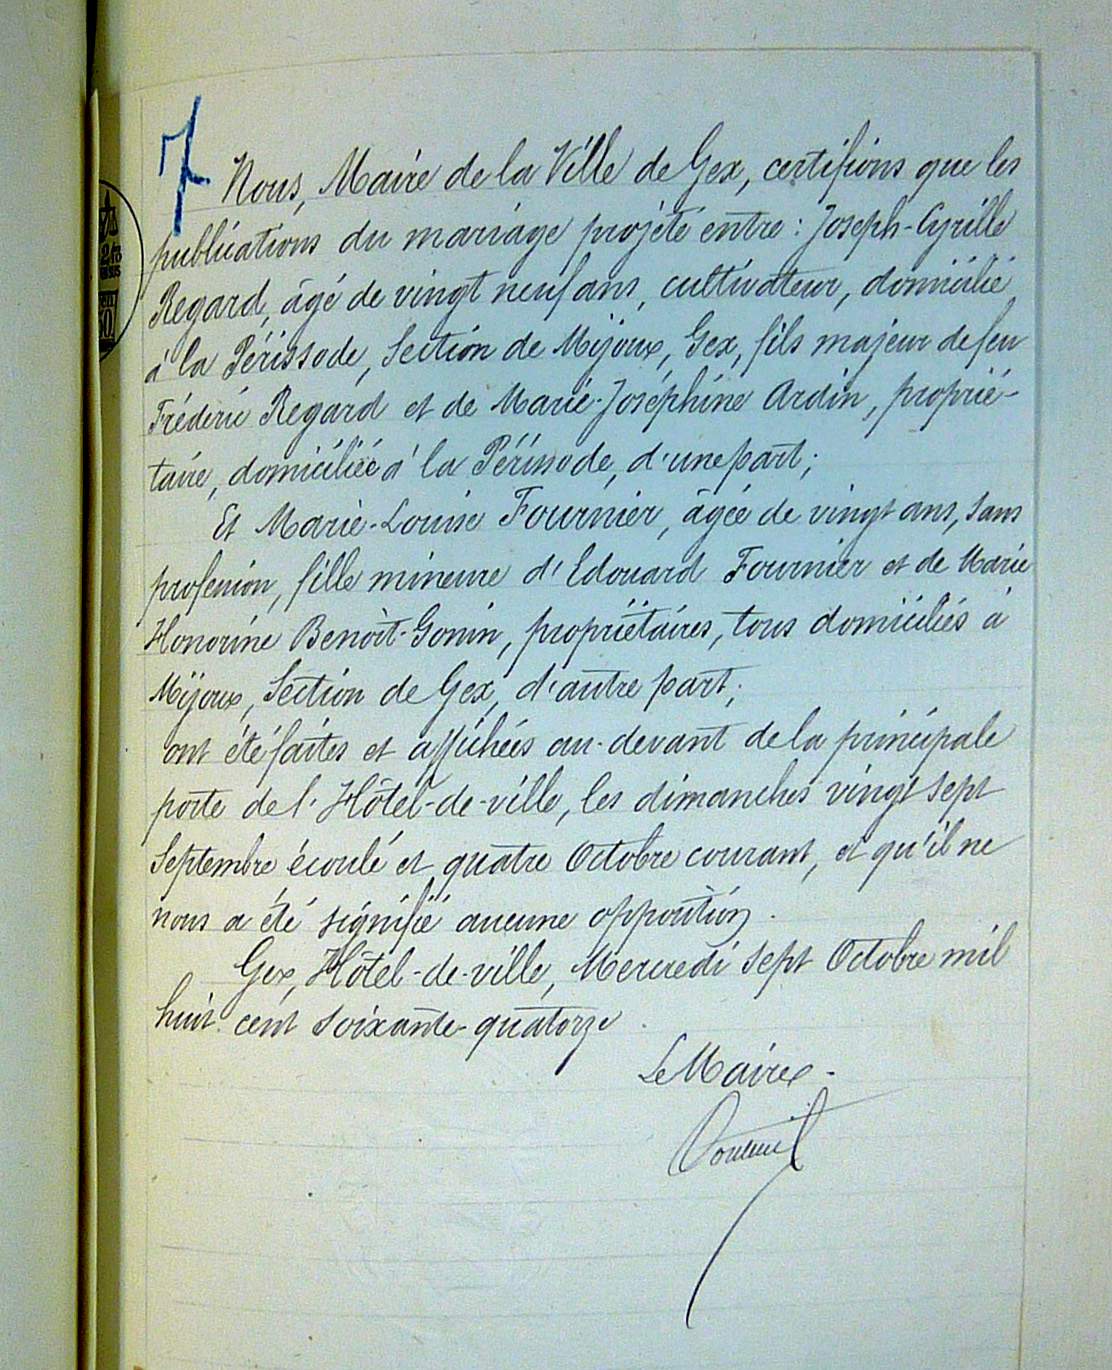 7
Nous, Maire de la Ville de Gex, certifions que les
publications du mariage projeté entre : Joseph-Cyrille
Regard, âgé de vingt neuf ans, cultivateur, domicilié
à la Périssode, Section de Mijoux, Gex, fils majeur de feu
Fréderic Regard et de Marie-Joséphine Ardin, proprié-
taire, domiciliée à la Périssode, d'une part;
Et Marie-Louise Fournier, âgée de vingt ans, sans
profession, fille mineure d'Edouard Fournier et de Marie
Honorine Benoît-Gonin, propriétaires, tous domiciliés à
Mijoux, Section de Gex, d'autre part;
ont été faites et affichées au-devant de la principale
porte de l'Hôtel-de-ville, les dimanches vingt sept
Septembre écoulé et quatre Octobre courant, et qu'il ne
nous a été signifié aucune opposition.
Gex, Hôtel-de-ville, Mercredi sept Octobre mil
huit cent soixante-quatorze.
Le Maire.